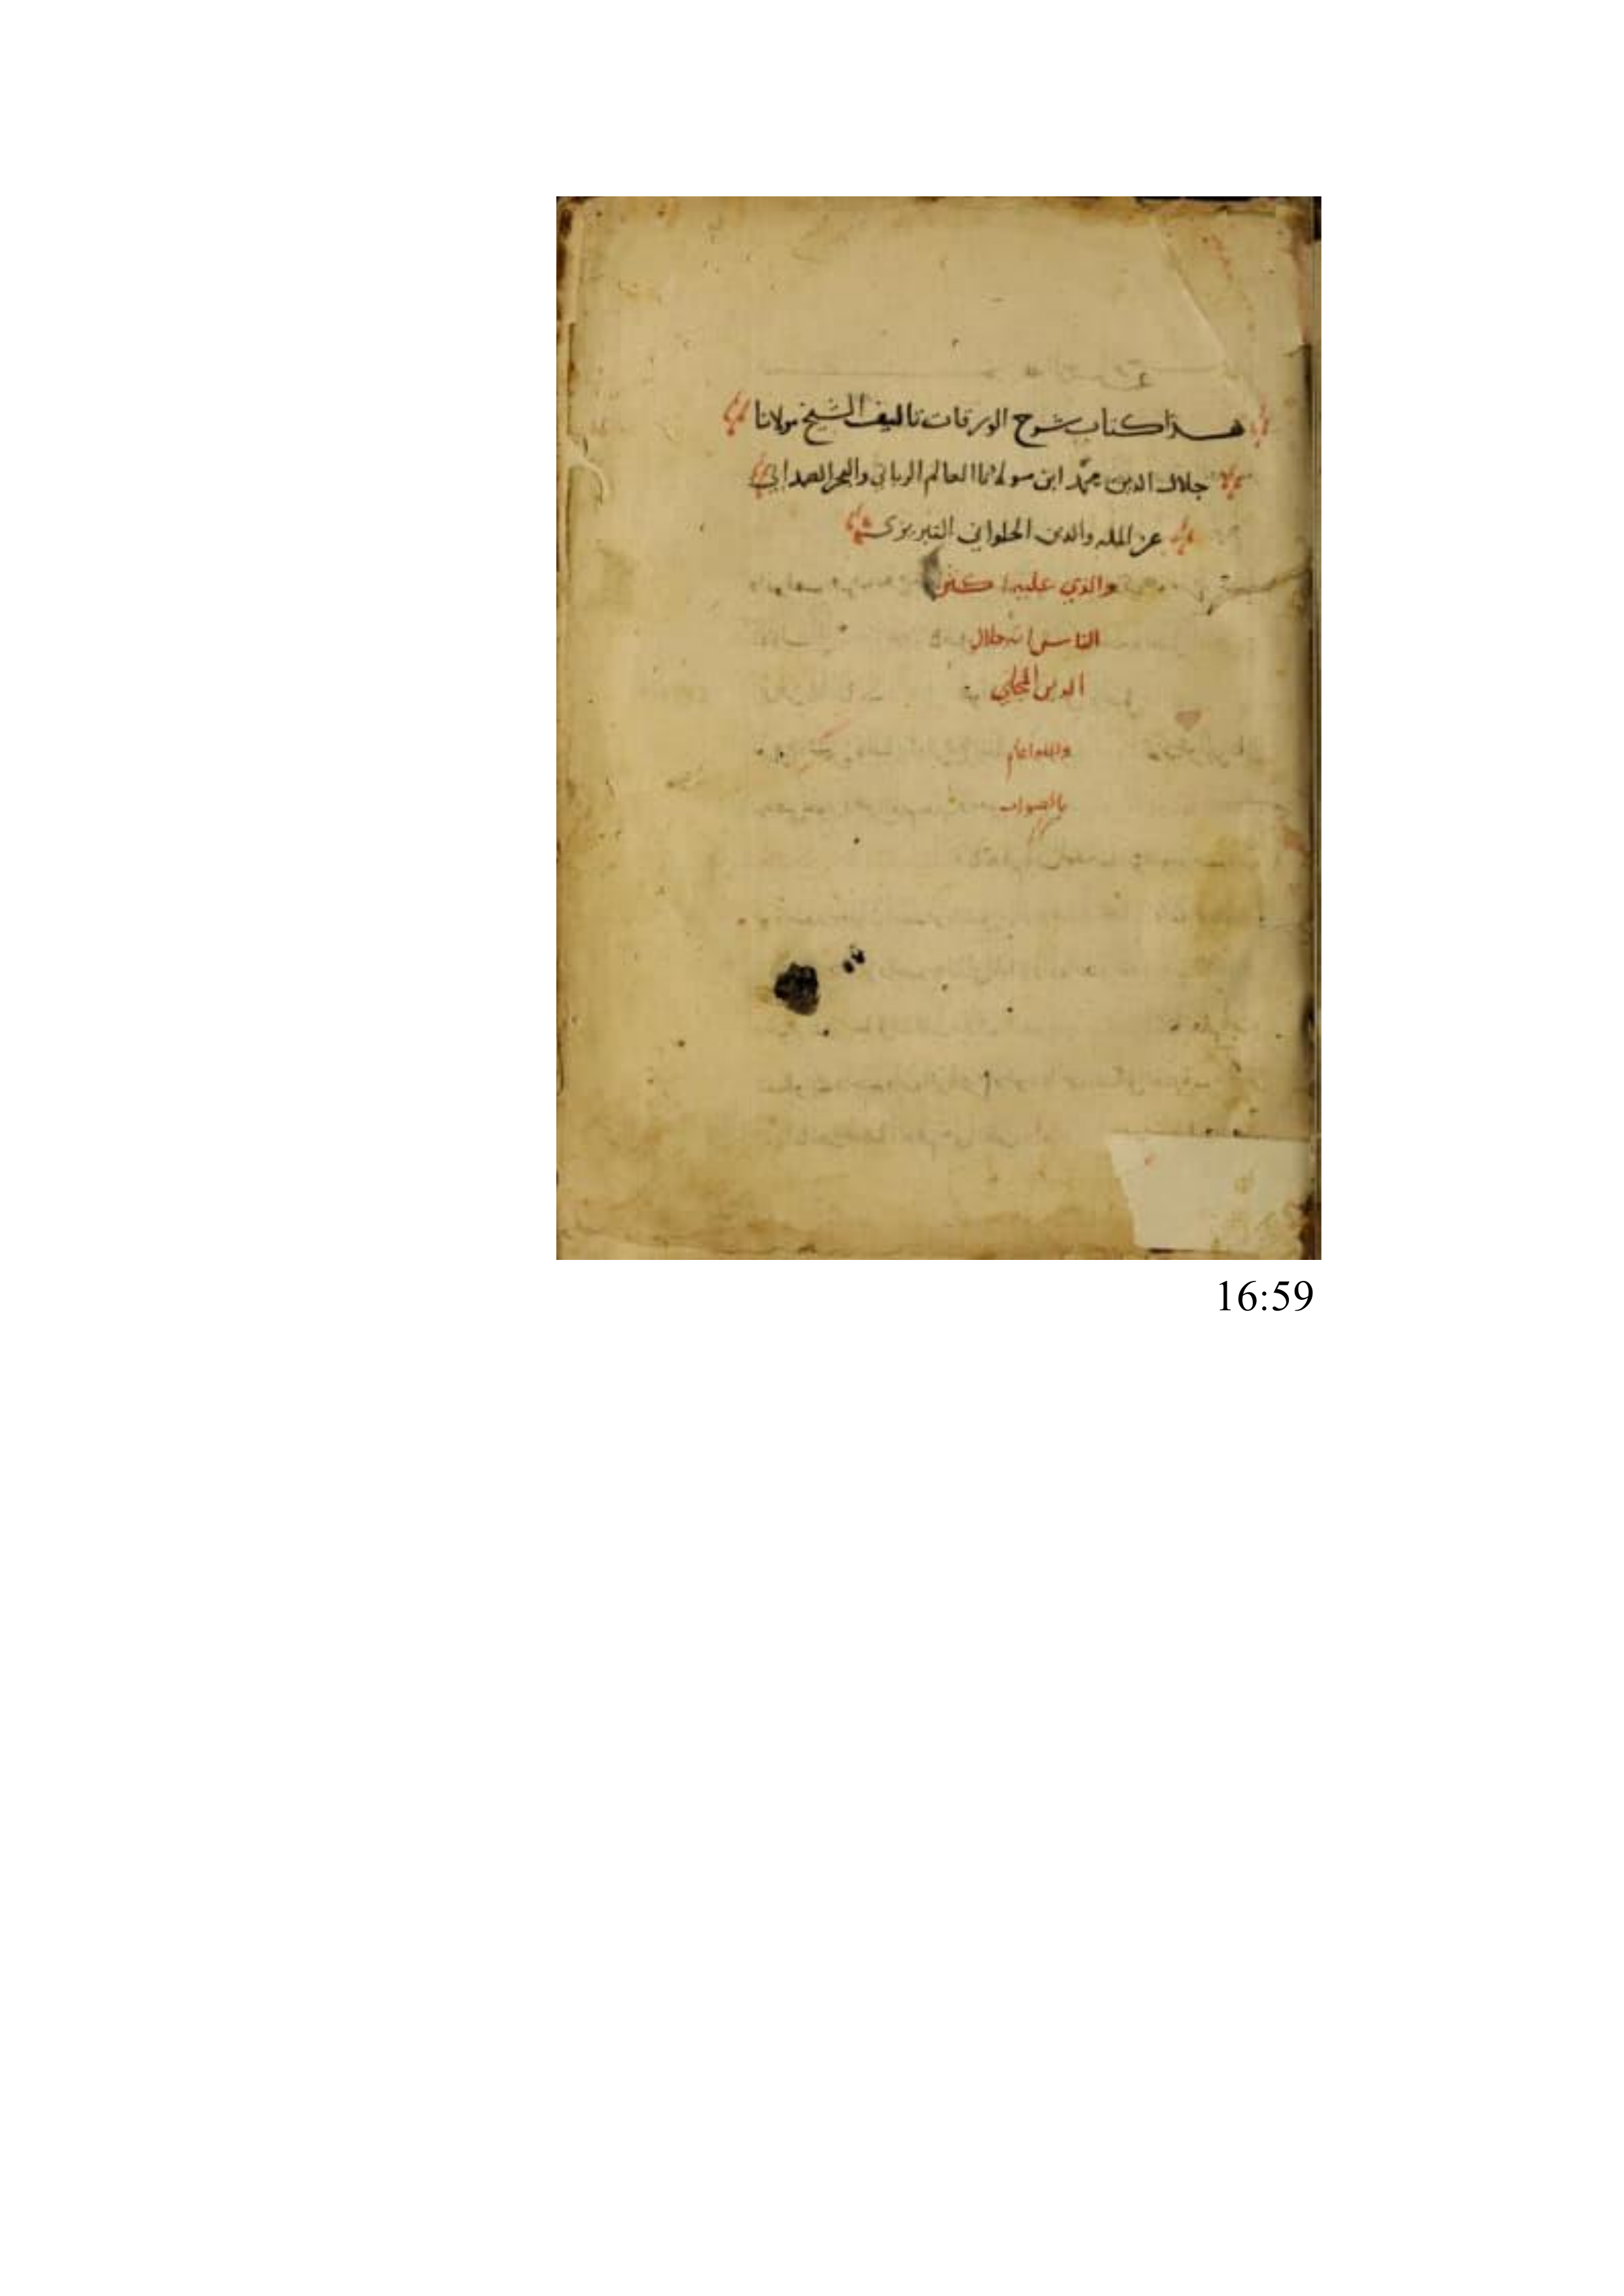 هذا كتاب شرح الورقات تاليف الشيخ مولانا
جلال الدين محمد ابن مولانا العالم الرباني والبحر الصمداني
عز المله والدين الحلواني التبريزى
والذي عليه اكثر
الناس انه جلال
الدين المحلي
والله اعلم
بالصواب
16:59